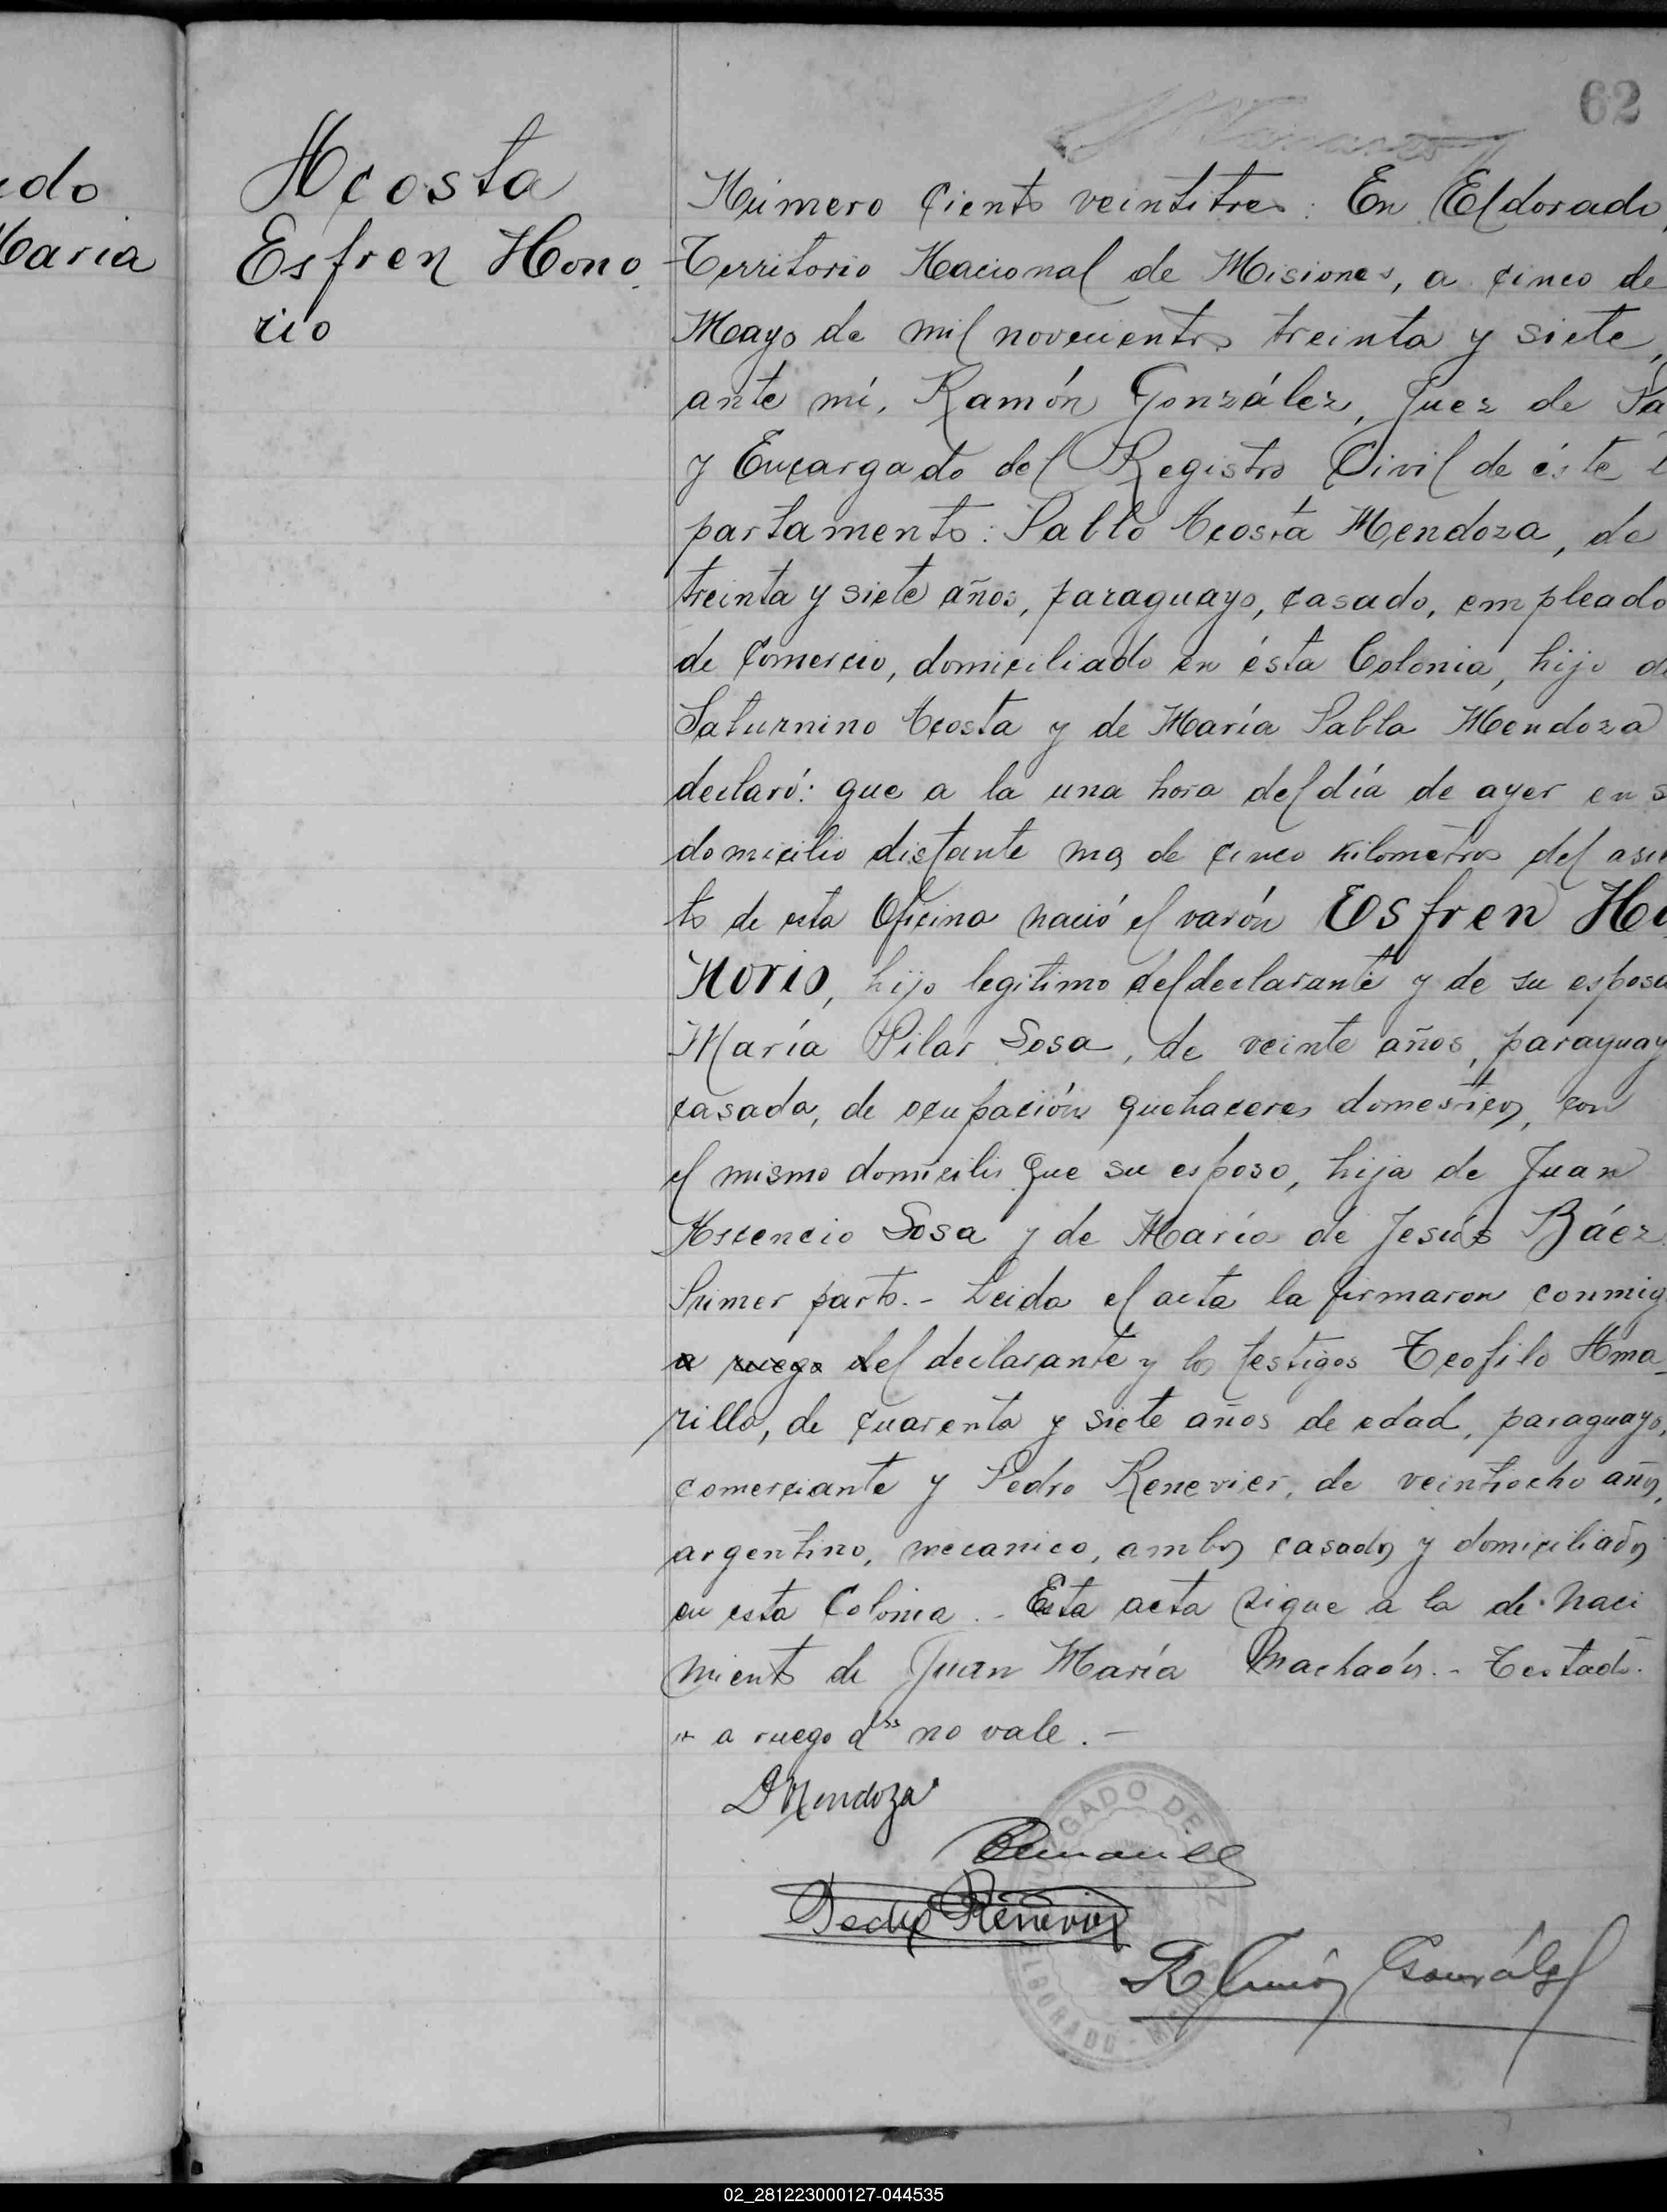 62
edo
Maria
Acosta
Esfren Hono
rio
Número Ciento veintitres: En Eldorado,
Territorio Nacional de Misiones, a cinco de
Mayo de mil novecientos treinta y siete,
ante mí, Ramón González, Juez de Pa
y Encargado del Registro Civil de éste
partamento: Pablo Acosta Mendoza, de
treinta y siete años, paraguayo, casado, empleado
de Comercio, domiciliado en ésta Colonia, hijo de
Saturnino Acosta y de María Pabla Mendoza
declaró: que a la una hora del día de ayer en s
domicilio distante mas de cinco kilometros del asie
to de esta Oficina nació el varón Esfren Ho
Norio, hijo legitimo del declarante y de su esposa
María Pilar Sosa, de veinte años, paraguay
casada, de ocupación quehaceres domesticos, con
el mismo domicilio que su esposo, hija de Juan
Ascencio Sosa y de María de Jesús Báez
Primer parto.- Leida el acta la firmaron conmig
a ruego del declarante y los testigos Teofilo Ama-
rilla, de cuarenta y siete años de edad, paraguayo,
comerciante y Pedro Renevier, de veintiocho años,
argentino, mecanico, ambos casados y domiciliados
en esta Colonia.- Esta acta sigue a la de naci
miento de Juan María Machaón.- Testado.
" a ruego d" no vale.-
Mendoza
JUZGADO DE PAZ
Pedro Renevier
ELDORADO - MISIONES
Ramón González
02_281223000127-044535